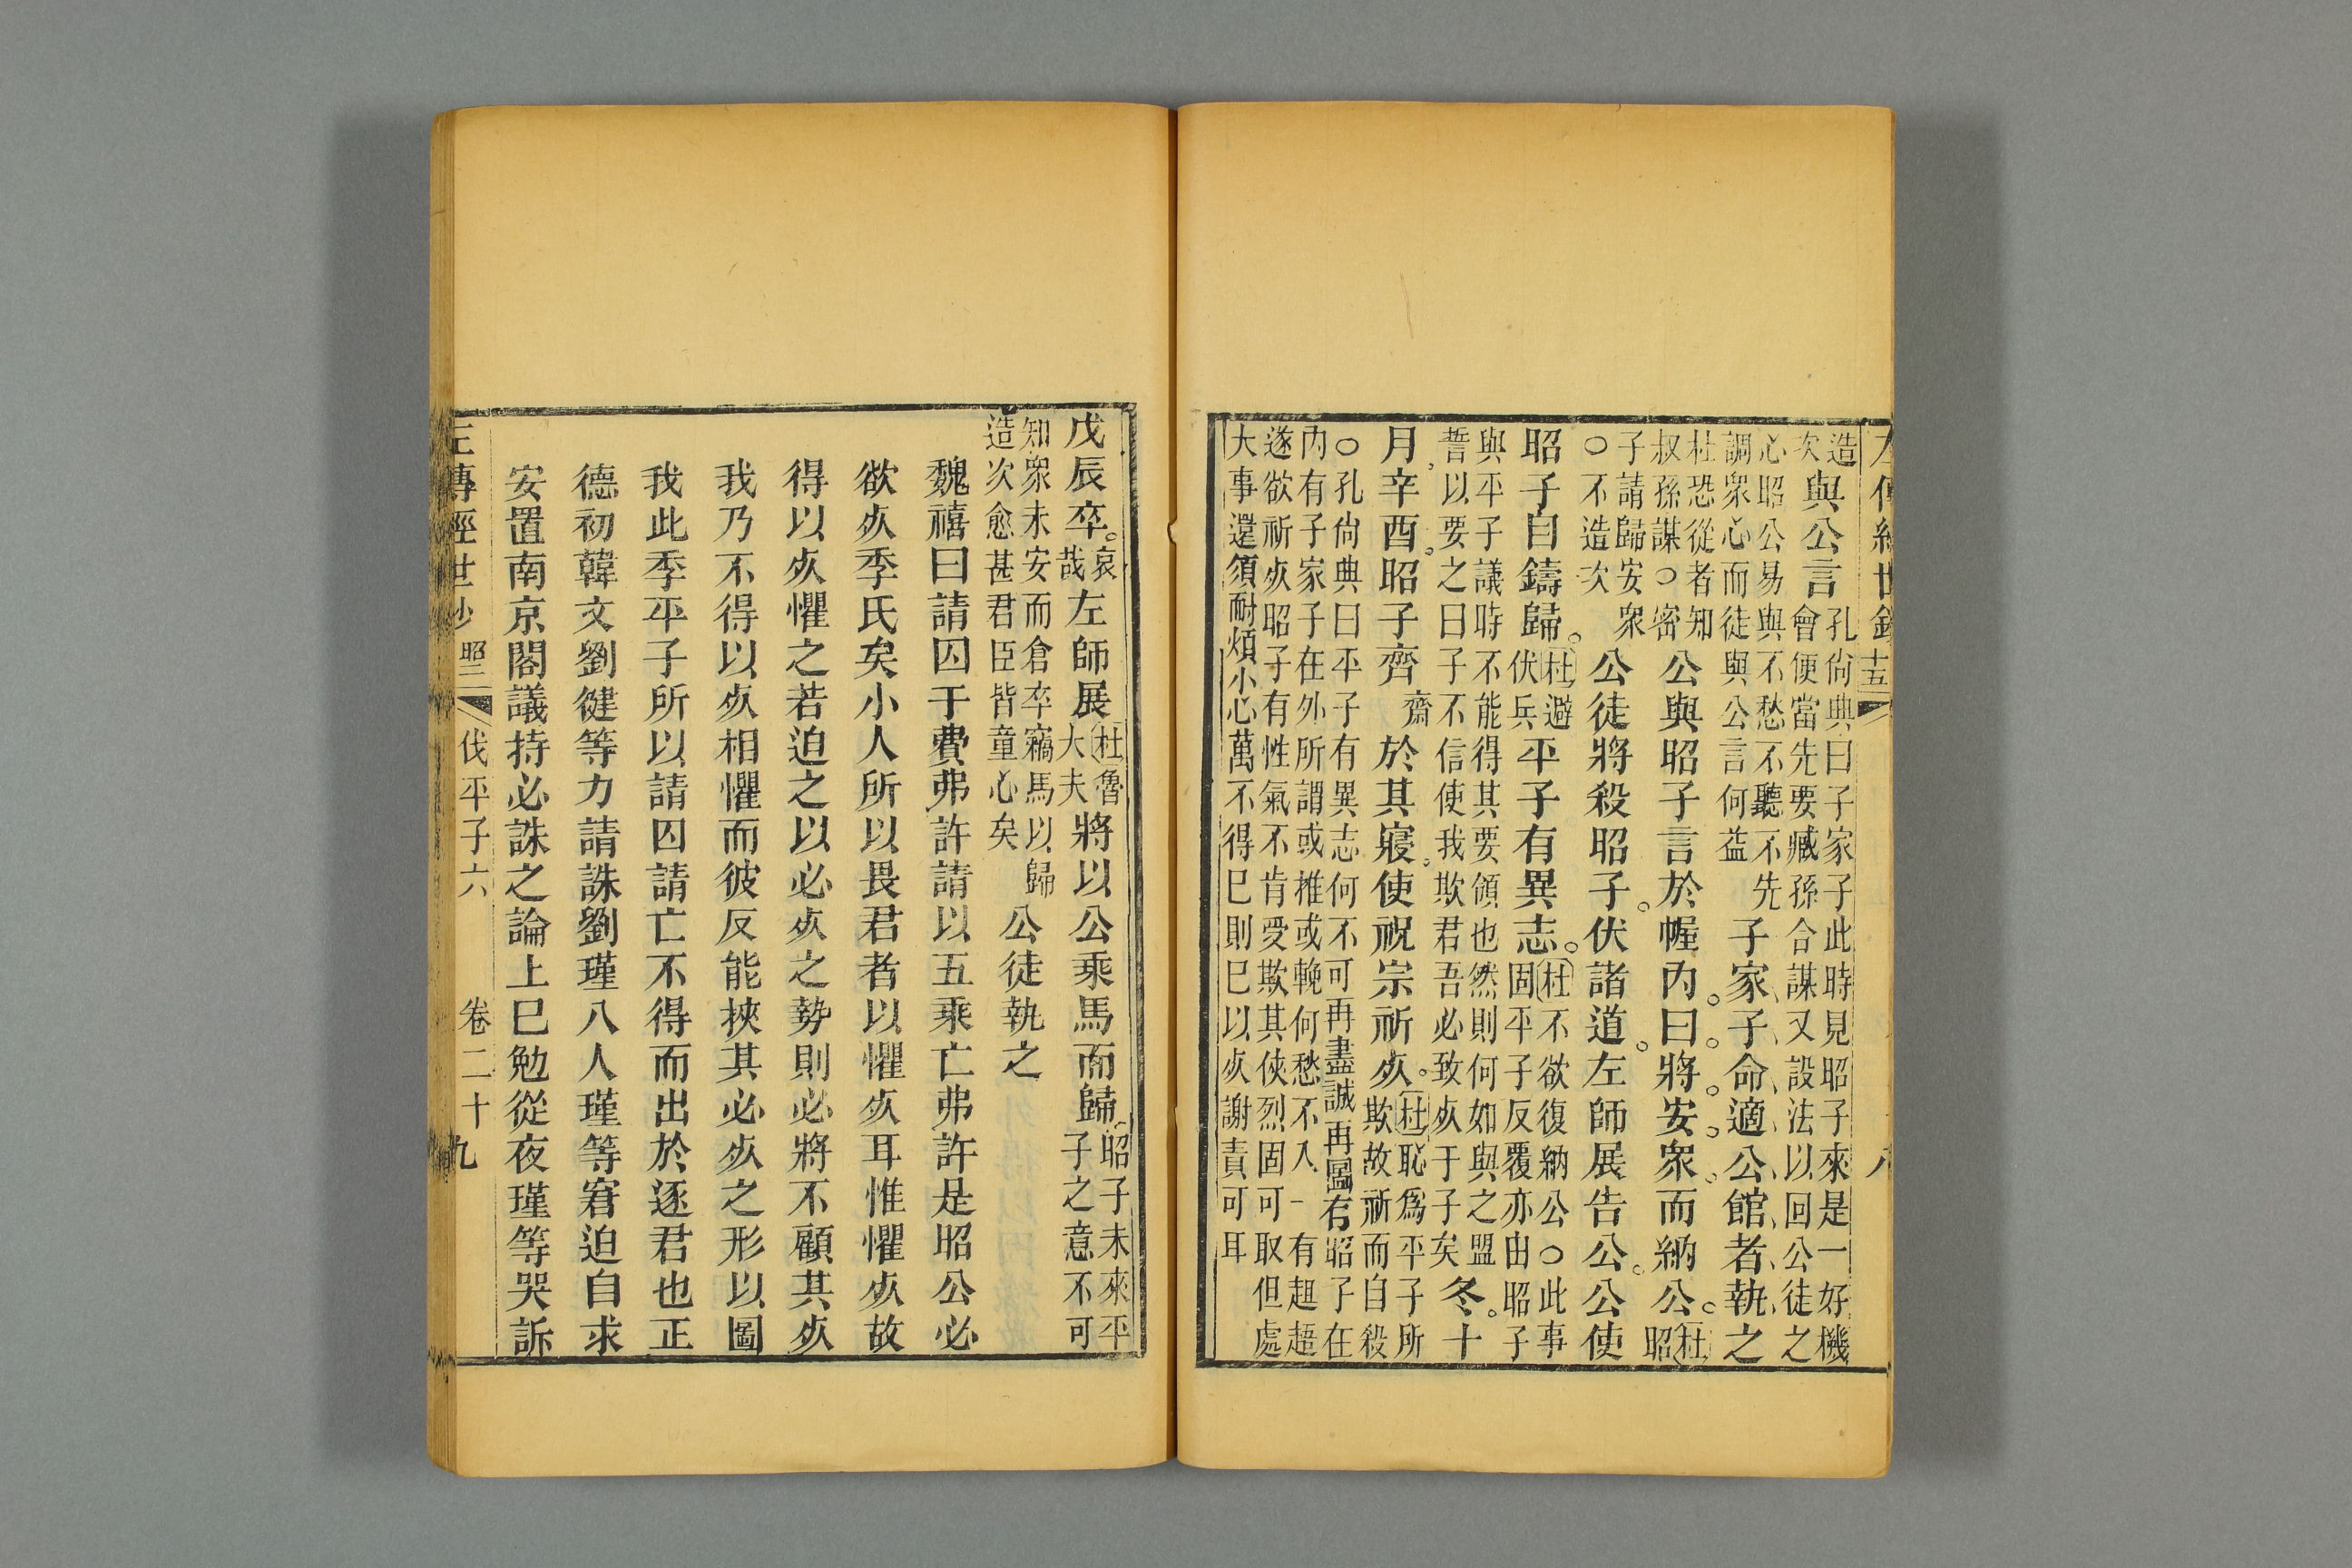 左傳經世鈔 十五 八
造次與公言孔尚典曰子家子此時見昭子來是一好機會便當先要臧孫合謀又設法以回公徒之
心昭公易與不愁不聽不先調衆心而徒與公言何益子家子命適公館者執之
杜恐從者知叔孫謀○密公與昭子言於幄內曰將安衆而納公杜昭
子請歸安衆○不造次公徒將殺昭子伏諸道左師展告公公使
昭子自鑄歸杜避伏兵平子有異志杜不欲復納公○此事固平子反覆亦由昭子
與平子議時不能得其要領也然則何如與之盟誓以要之曰子不信使我欺君吾必致死于子矣冬十
月辛酉昭子齊齋於其寢使祝宗祈死杜恥爲平子所欺故祈而自殺
○孔尚典曰平子有異志何不可再盡誠再圖有昭子在內有子家子在外所謂或推或輓何愁不入一有趦趄
遂欲祈死昭子有性氣不肯受欺其俠烈固可取但處大事還須耐煩小心萬不得已則已以死謝責可耳
戊辰卒哀哉左師展杜魯大夫將以公乘馬而歸昭子未來平子之意不可
知衆未安而倉卒竊馬以歸造次愈甚君臣皆童心矣公徒執之
魏禧曰請囚于費弗許請以五乘亡弗許是昭公必
欲死季氏矣小人所以畏君者以懼死耳惟懼死故
得以死懼之若迫之以必死之勢則必將不顧其死
我乃不得以死相懼而彼反能挾其必死之形以圖
我此季平子所以請囚請亡不得而出於逐君也正
德初韓文劉健等力請誅劉瑾八人瑾等窘迫自求
安置南京閣議持必誅之論上已勉從夜瑾等哭訴
左傳經世鈔 昭三 伐平子六 卷二十九